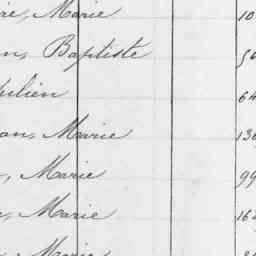 re, Marie 10
n, Baptiste
ulien 64
on, Marie 130
, Marie 99
, Marie 162
, Marie